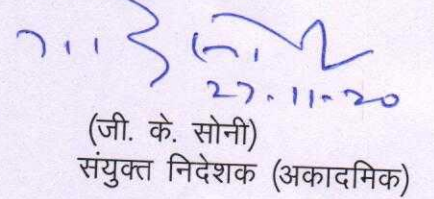 27.11.20
(जी. के. सोनी)
संयुक्त निदेशक (अकादमिक)